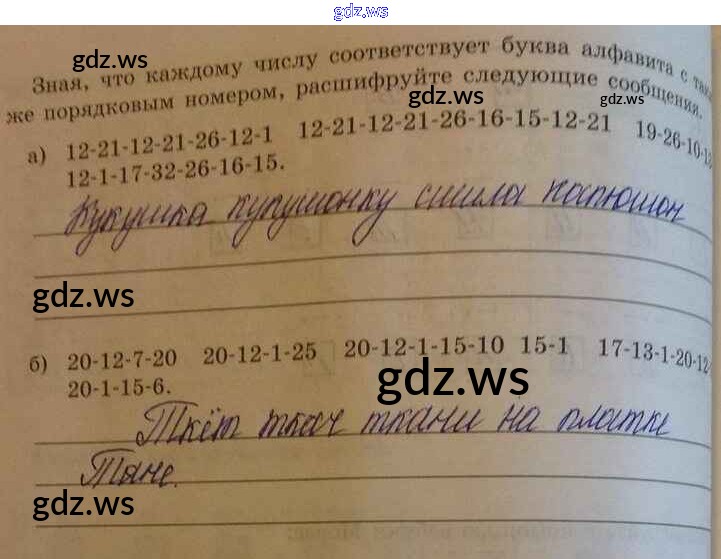 gdz.ws
gdz.ws
Зная, что каждому числу соответствует буква алфавита с так
же порядковым номером, расшифруйте следующие сообщения.
gdz.ws
gdz.ws
а) 12-21-12-21-26-12-1 12-21-12-21-26-16-15-12-21 19-26-10-13
12-1-17-32-26-16-15.
Кукушка кукушонку сшила капюшон
gdz.ws
б) 20-12-7-20 20-12-1-25 20-12-1-15-10 15-1 17-13-1-20-12-
20-1-15-6.
gdz.ws
Ткёт ткач ткани на платке
Тане.
gdz.ws